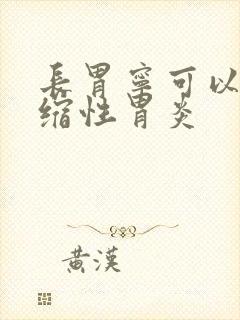 長胃寧可以
缩性胃炎
黄漢